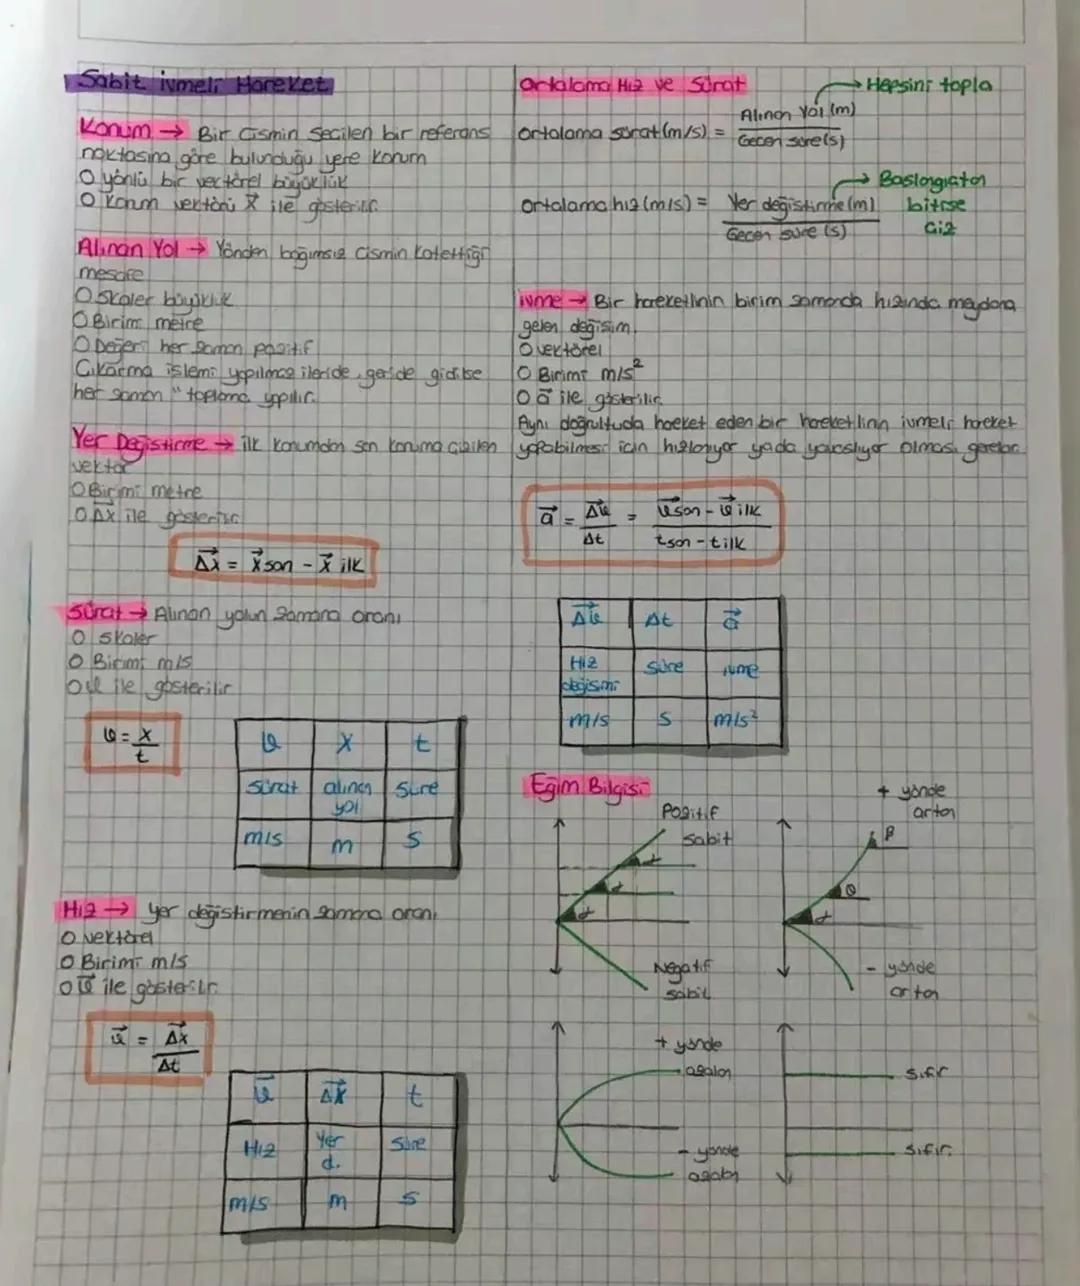 Sabit ivmeli Hareket
Konum → Bir cismin seçilen bir referans
noktasına göre bulunduğu yere konum
O yönlü bir vektörel büyüklük
O Konum vektörü x⃗ ile gösterilir.
Alınan Yol → Yönden bağımsız cismin katettiği
mesafe
O Skaler büyüklük
O Birimi metre
O Değeri her zaman pozitif
Çıkarma işlemi yapılmaz ileride, geride gidilse
her zaman "toplama yapılır.
Yer Değiştirme → ilk konumdan son konuma çizilen
vektör
O Birimi metre
O Δx⃗ ile gösterilir
Δx⃗ = x⃗ son - x⃗ ilk
Sürat → Alınan yolun zamana oranı
O Skaler
O Birimi m/s
O ϑ ile gösterilir
ϑ = x/t
ϑ x t
Sürat alınan yol Süre
m/s m s
Hız → yer değiştirmenin zamana oranı
O vektörel
O Birimi m/s
O ϑ⃗ ile gösterilir
ϑ⃗ = Δx⃗/Δt
ϑ⃗ Δx⃗ t
Hız Yer d. Süre
m/s m s
Ortalama Hız ve Sürat
→ Hepsini topla
ortalama sürat (m/s) = Alınan Yol (m)
Geçen süre (s)
→ Başlangıçtan
ortalama hız (m/s) = Yer değiştirme (m) bitişe
Geçen süre (s) çiz
ivme → Bir hareketlinin birim zamanda hızında meydana
gelen değişim.
O vektörel
O Birimi m/s²
O a⃗ ile gösterilir.
Aynı doğrultuda hareket eden bir hareketlinin ivmeli hareket
yapabilmesi için hızlanıyor yada yavaşlıyor olması gerekir.
a⃗ = Δϑ⃗/Δt = ϑ⃗ son - ϑ⃗ ilk / t son - t ilk
Δϑ⃗ Δt a⃗
Hız değişimi Süre ivme
m/s s m/s²
Eğim Bilgisi
Pozitif
sabit
α
α
α
Negatif
sabit
+ yönde
artan
β
θ
α
- yönde
artan
+ yönde
azalan
- yönde
azalan
sıfır
sıfır.